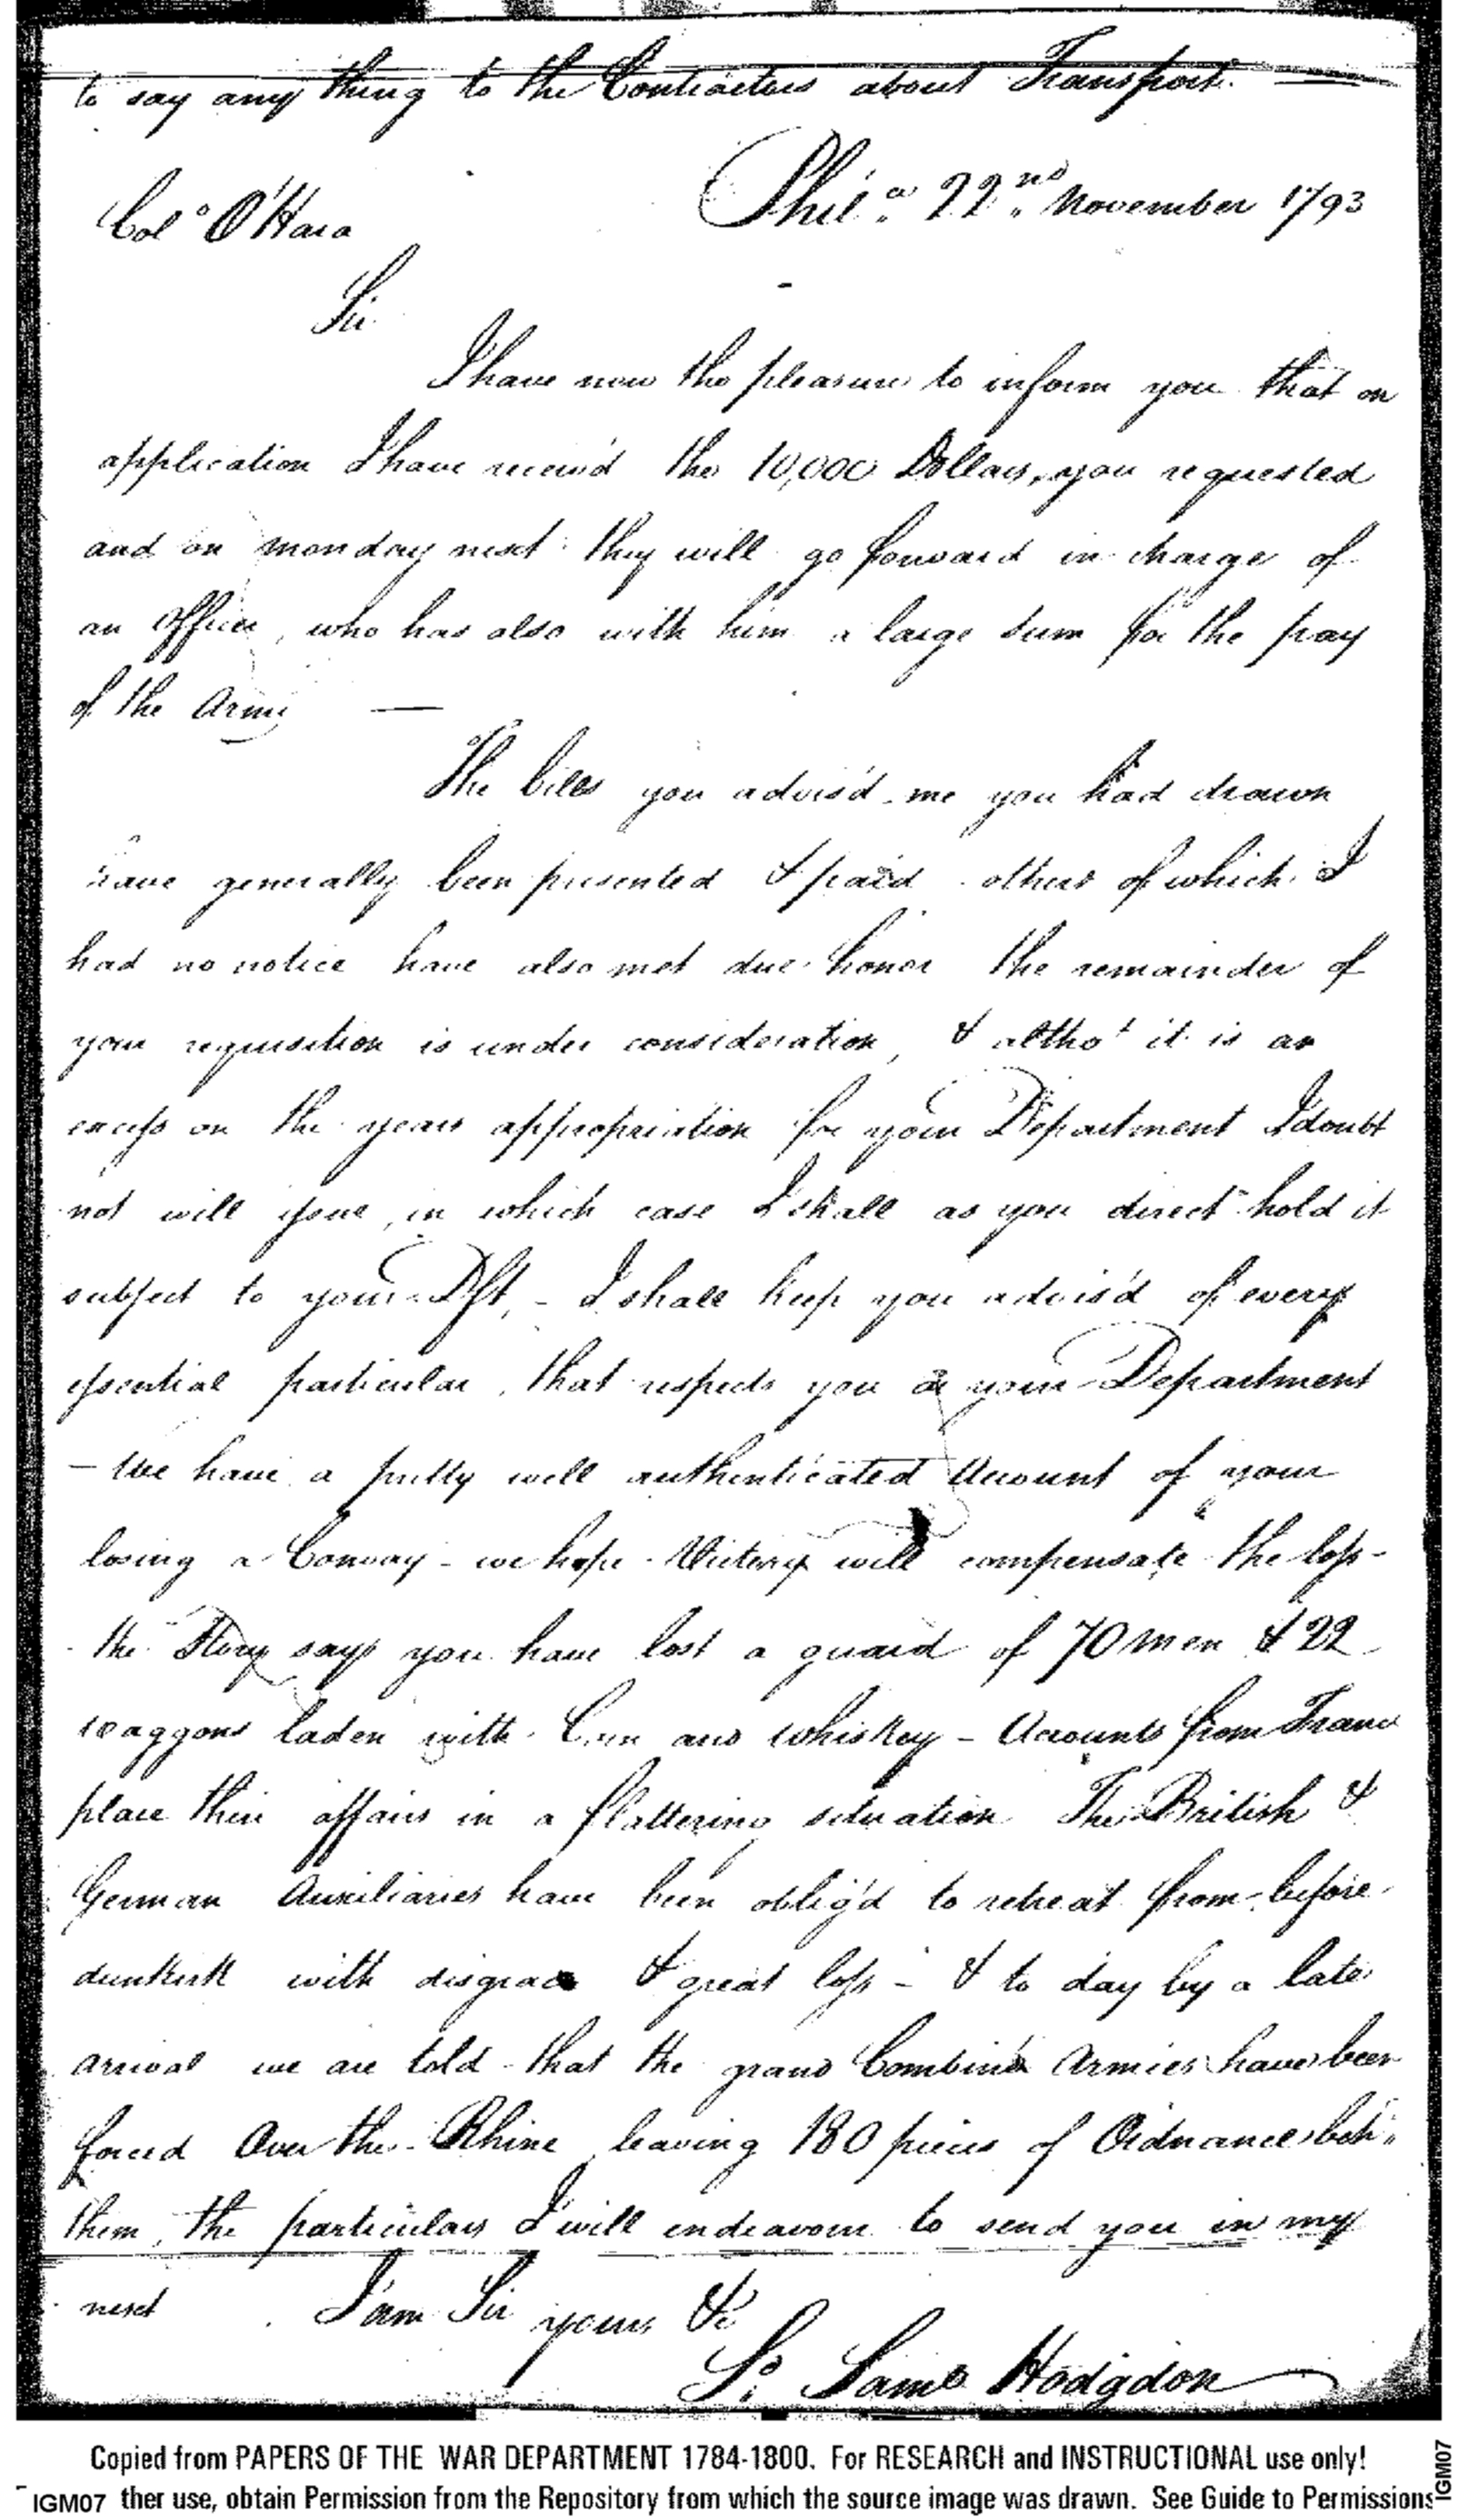 to say any thing to the Contractors about Transport.
Phila. 22nd. November 1793
Colo O'Hara
Sir.
I have now the pleasure to inform you that on
application I have receiv'd the 10,000 Dollars, you requested
and on monday next they will go forward in charge of
an Officer, who has also with him a large sum for the pay
of the Army —
The bills you advis'd me you had drawn
have generally been presented & paid others of which I
had no notice have also met due honor the remainder of
your requisition is under consideration, & altho' it is an
excess on the years appropriation for your Department I doubt
not will issue, in which case I shall as you direct hold it
subject to your Dft, - I shall keep you advis'd of every
essential particular, that respects you or your Department
- We have a pretty well authenticated Account of your
losing a Convoy - we hope Victory will compensate the loss -
the Story says you have lost a guard of 70 men & 22
waggons laden with Corn and Whiskey - Accounts from France
place their affairs in a flattering situation The British &
German Auxiliaries have been oblig'd to retreat from before
dunkirk with disgrace & great loss - & to day by a late
arrival we are told that the grand Combin'd Armies have been
forced Over the Rhine leaving 180 pieces of Ordnance beh..
them, the particulars I will endeavour to send you in my
next I am Sir yours &c
S. Saml Hodgdon
Copied from PAPERS OF THE WAR DEPARTMENT 1784-1800. For RESEARCH and INSTRUCTIONAL use only!
IGM07 ther use, obtain Permission from the Repository from which the source image was drawn. See Guide to Permissions
IGM07